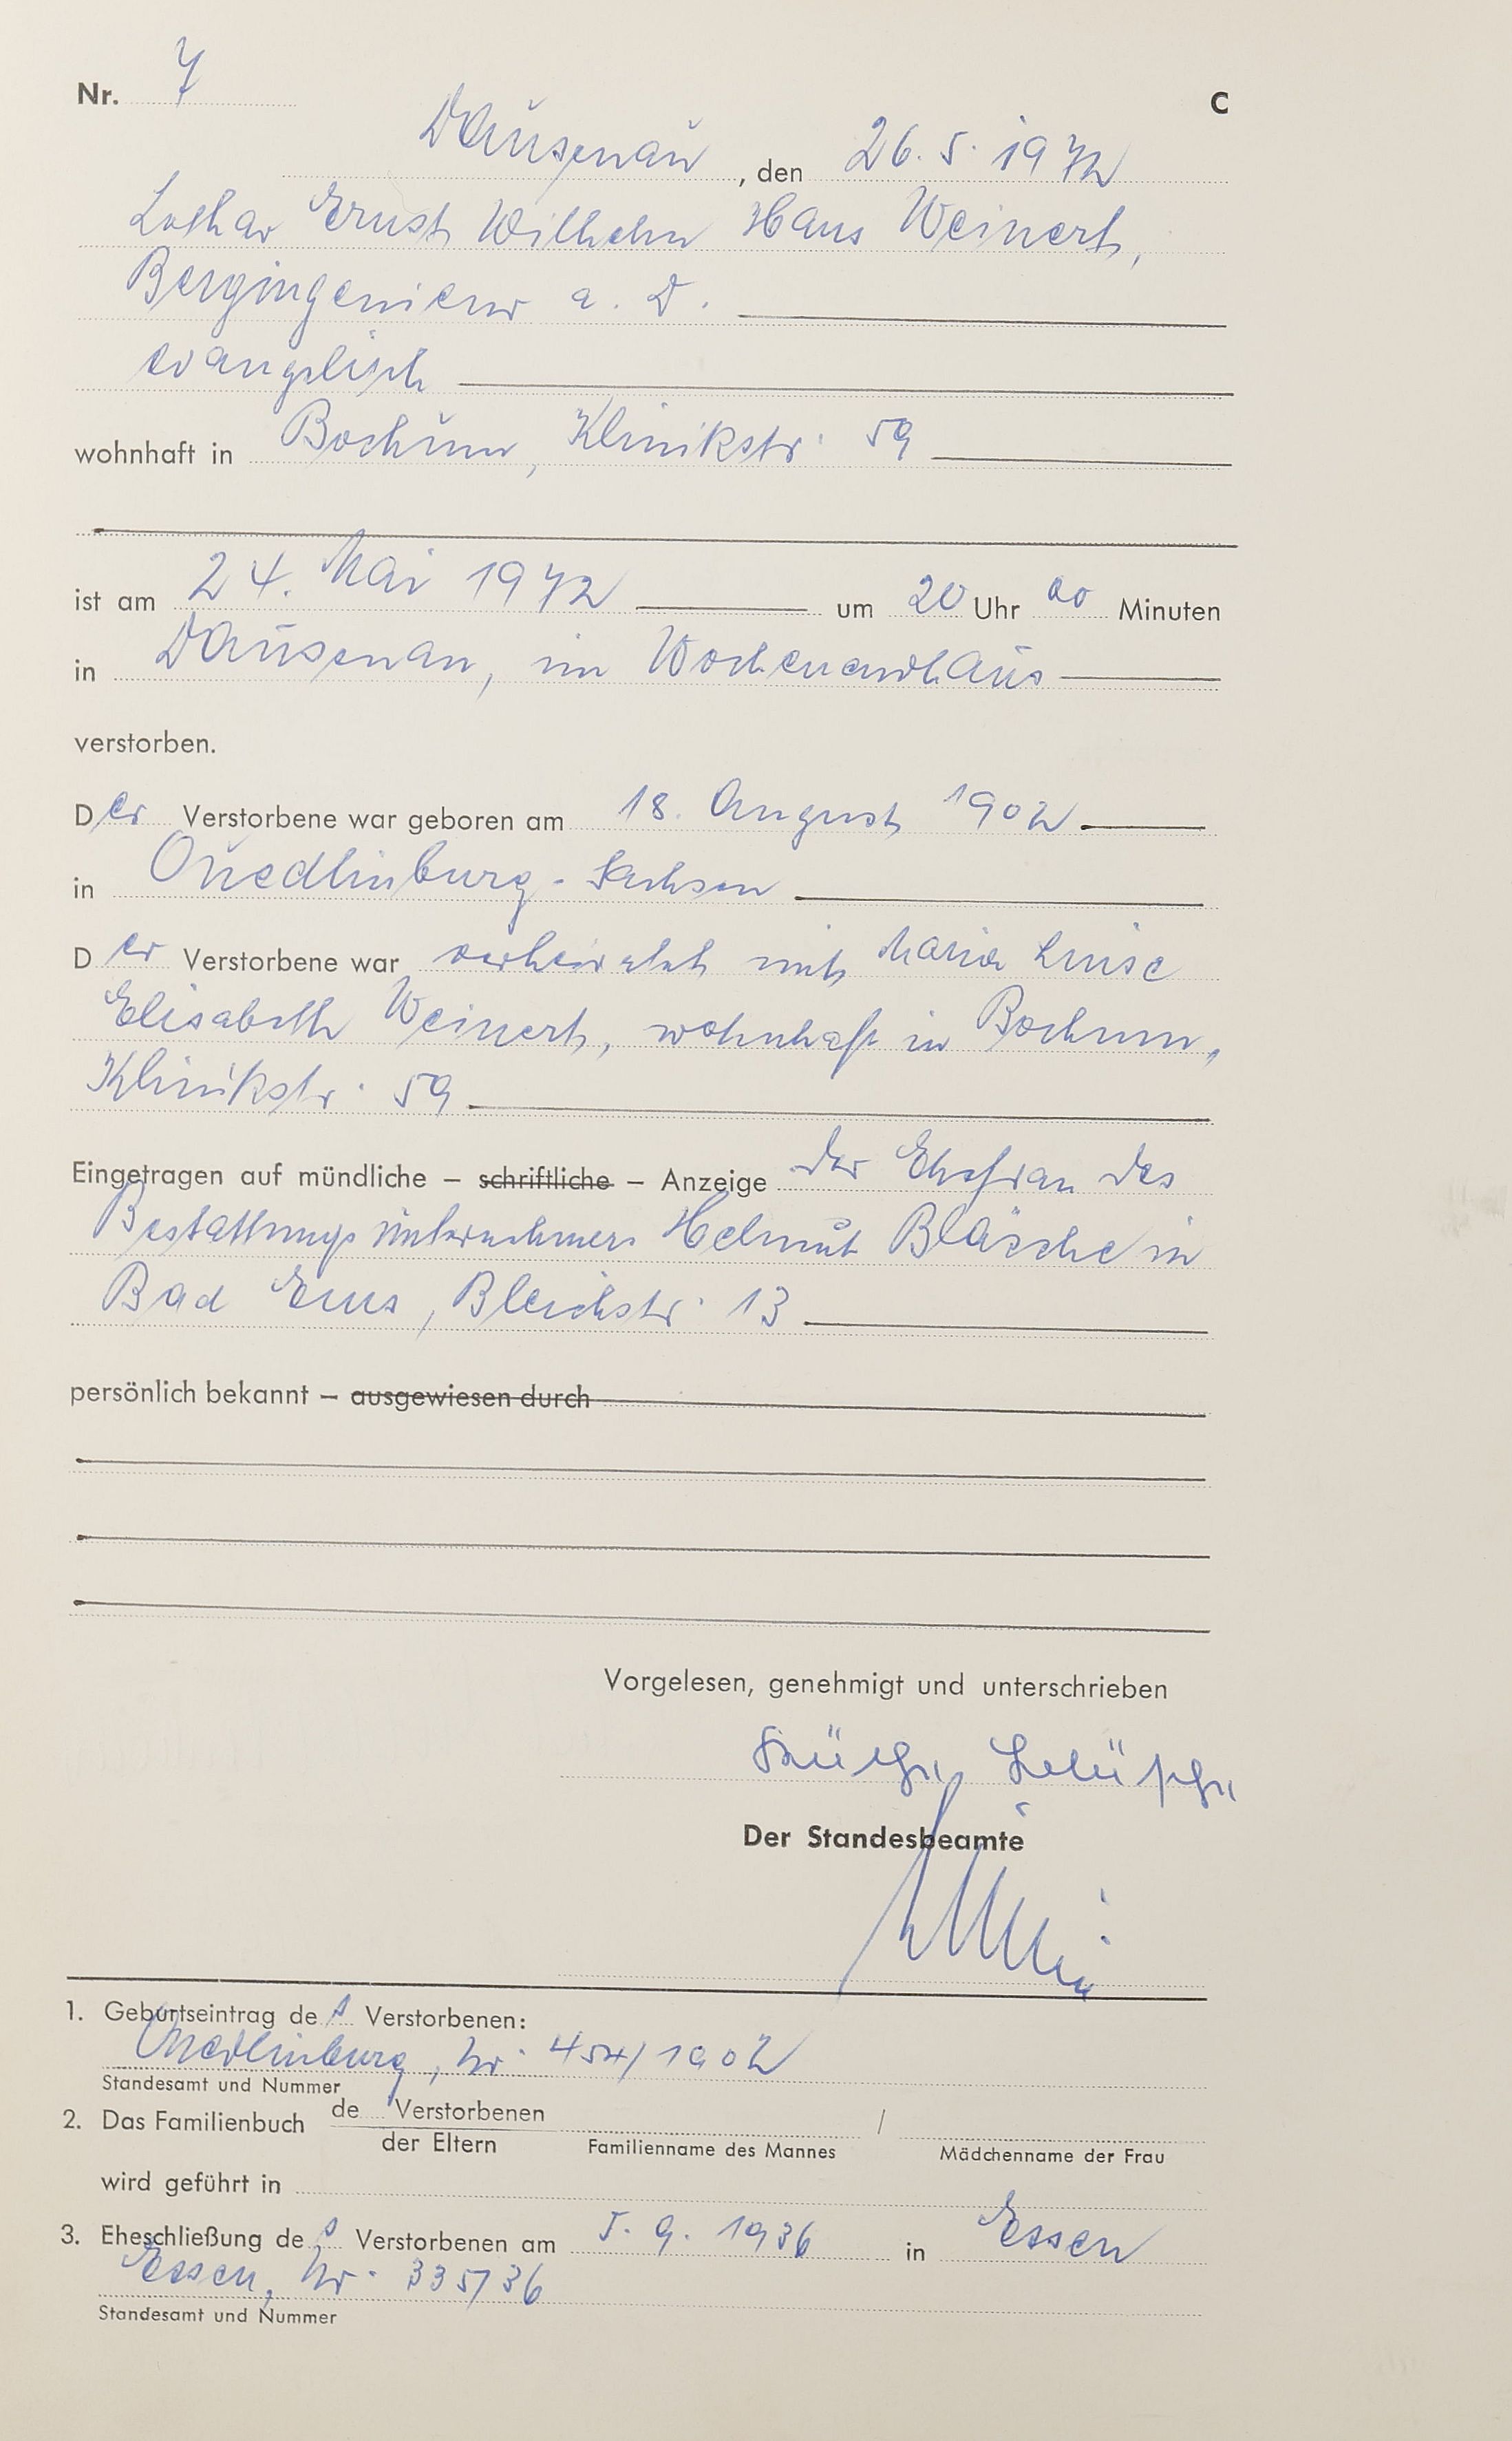 Nr. 7
C
Dausenau, den 26.5.1972
Lothar Ernst Wilhelm Hans Weinert,
Bergingenieur a. D.
evangelisch
wohnhaft in Bochum, Klinikstr. 59
ist am 24. Mai 1972 um 20 Uhr 00 Minuten
in Dausenau, im Wochenendhaus
verstorben.
Der Verstorbene war geboren am 18. August 1902
in Quedlinburg-Sachsen
Der Verstorbene war verheiratet mit Maria Luise
Elisabeth Weinert, wohnhaft in Bochum,
Klinikstr. 59
Eingetragen auf mündliche – schriftliche – Anzeige der Ehefrau des
Bestattungsunternehmers Helmut Bläsche in
Bad Ems, Bleichstr. 13
persönlich bekannt – ausgewiesen durch
Vorgelesen, genehmigt und unterschrieben
Der Standesbeamte
1. Geburtseintrag des Verstorbenen:
Quedlinburg, Nr. 454/1902
Standesamt und Nummer
2. Das Familienbuch de Verstorbenen /
der Eltern Familienname des Mannes Mädchenname der Frau
wird geführt in
3. Eheschließung des Verstorbenen am 5.9.1936 in Essen
Essen, Nr. 335/36
Standesamt und Nummer